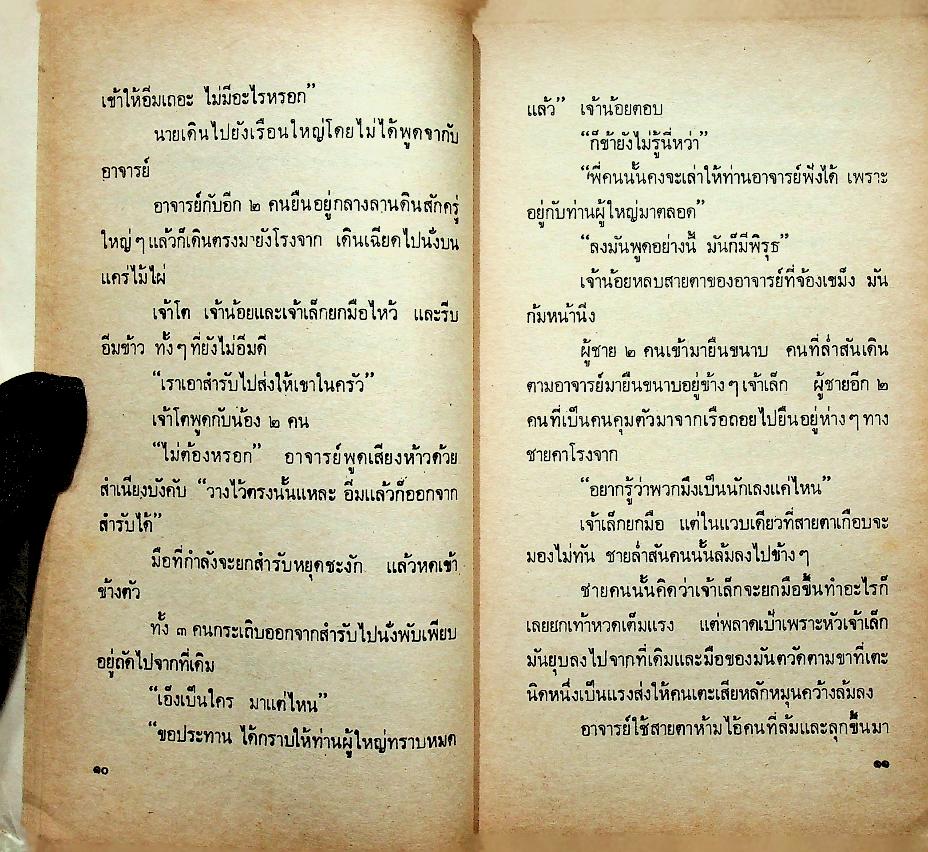 เข้าให้อิ่มเถอะ ไม่มีอะไรหรอก”
นายเดินไปยังเรือนใหญ่โดยไม่ได้พูดจากับ
อาจารย์
อาจารย์กับอีก ๒ คนยืนอยู่กลางลานดินสักครู่
ใหญ่ ๆ แล้วก็เดินตรงมายังโรงจาก เดินเฉียดไปนั่งบน
แคร่ไม้ไผ่
เจ้าโต เจ้าน้อยและเจ้าเล็กยกมือไหว้ และรีบ
อิ่มข้าว ทั้ง ๆ ที่ยังไม่อิ่มดี
“เราเอาสำรับไปส่งให้เขาในครัว”
เจ้าโตพูดกับน้อง ๒ คน
“ไม่ต้องหรอก” อาจารย์พูดเสียงห้าวด้วย
สำเนียงบังคับ “วางไว้ตรงนั้นแหละ อิ่มแล้วก็ออกจาก
สำรับได้”
มือที่กำลังจะยกสำรับหยุดชะงัก แล้วหดเข้า
ข้างตัว
ทั้ง ๓ คนกระเถิบออกจากสำรับไปนั่งพับเพียบ
อยู่ถัดไปจากที่เดิม
“เอ็งเป็นใคร มาแต่ไหน”
“ขอประทาน ได้กราบให้ท่านผู้ใหญ่ทราบหมด
๑๐
แล้ว” เจ้าน้อยตอบ
“ก็ข้ายังไม่รู้นี่หว่า”
“พี่คนนั้นคงจะเล่าให้ท่านอาจารย์ฟังได้ เพราะ
อยู่กับท่านผู้ใหญ่มาตลอด”
“ลงมันพูดอย่างนี้ มันก็มีพิรุธ”
เจ้าน้อยหลบสายตาของอาจารย์ที่จ้องเขม็ง มัน
ก้มหน้านิ่ง
ผู้ชาย ๒ คนเข้ามายืนขนาบ คนที่ล่ำสันเดิน
ตามอาจารย์มายืนขนาบอยู่ข้าง ๆ เจ้าเล็ก ผู้ชายอีก ๒
คนที่เป็นคนคุมตัวมาจากเรือถอยไปยืนอยู่ห่าง ๆ ทาง
ชายคาโรงจาก
“อยากรู้ว่าพวกมึงเป็นนักเลงแค่ไหน”
เจ้าเล็กยกมือ แต่ในแวบเดียวที่สายตาเกือบจะ
มองไม่ทัน ชายล่ำสันคนนั้นล้มลงไปข้าง ๆ
ชายคนนั้นคิดว่าเจ้าเล็กจะยกมือขึ้นทำอะไรก็
เลยยกเท้าหวดเต็มแรง แต่พลาดเป้าเพราะหัวเจ้าเล็ก
มันยุบลงไปจากที่เดิมและมือของมันตวัดตามขาที่เตะ
นิดหนึ่งเป็นแรงส่งให้คนเตะเสียหลักหมุนคว้างล้มลง
อาจารย์ใช้สายตาห้ามไอ้คนที่ล้มและลุกขึ้นมา
๑๑